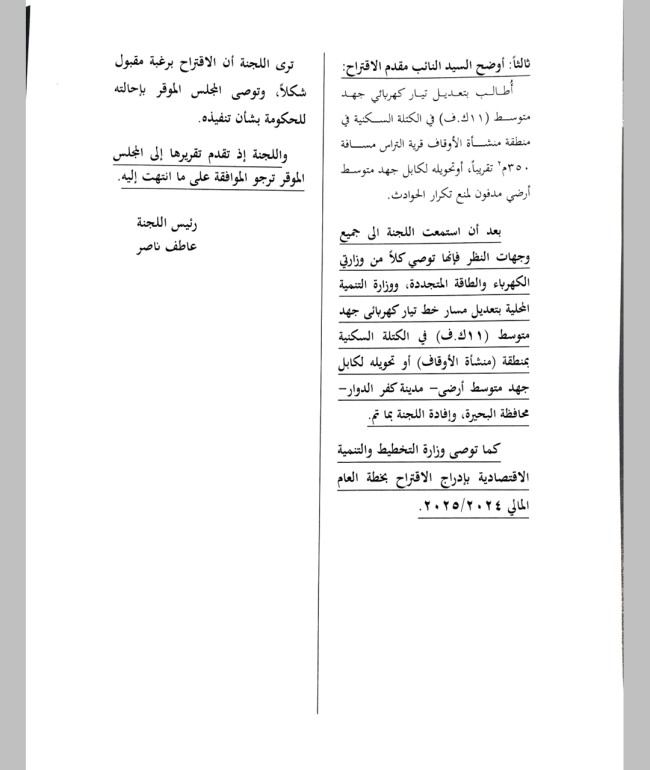 ثالثاً: أوضح السيد النائب مقدم الاقتراح:
أُطالب بتعديل تيار كهربائي جهد
متوسط (١١ك.ف) في الكتلة السكنية في
منطقة منشأة الأوقاف قرية التراس مسافة
٣٥٠م٢ تقريباً، أوتحويله لكابل جهد متوسط
أرضي مدفون لمنع تكرار الحوادث.
بعد أن استمعت اللجنة الى جميع
وجهات النظر فإنها توصي كلاً من وزارتي
الكهرباء والطاقة المتجددة، ووزارة التنمية
المحلية بتعديل مسار خط تيار كهربائى جهد
متوسط (١١ك.ف) في الكتلة السكنية
بمنطقة (منشأة الأوقاف) أو تحويله لكابل
جهد متوسط أرضى– مدينة كفر الدوار–
محافظة البحيرة، وإفادة اللجنة بما تم.
كما توصى وزارة التخطيط والتنمية
الاقتصادية بإدراج الاقتراح بخطة العام
المالي ٢٠٢٥/٢٠٢٤.
ترى اللجنة أن الاقتراح برغبة مقبول
شكلاً، وتوصى المجلس الموقر بإحالته
للحكومة بشأن تنفيذه.
واللجنة إذ تقدم تقريرها إلى المجلس
الموقر ترجو الموافقة على ما انتهت إليه.
رئيس اللجنة
عاطف ناصر